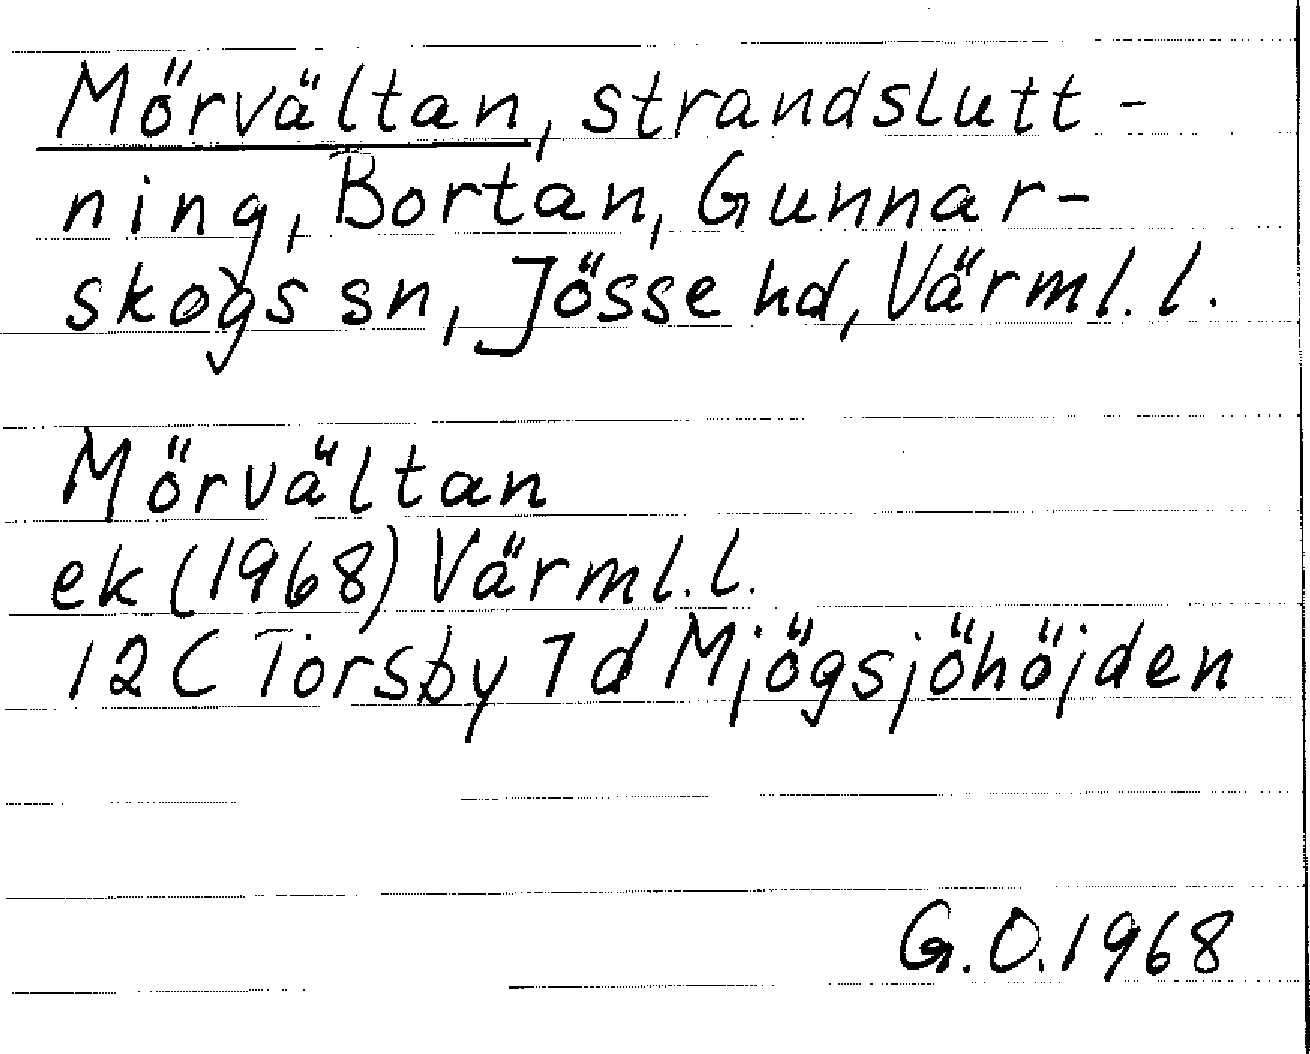 Mörvältan, strandslutt-
ning, Bortan, Gunnar-
skogs sn, Jösse hd, Värml. l.
Mörvältan
ek (1968) Värml. l.
12 C Torsby 7 d Mjögsjöhöjden
G.O. 1968